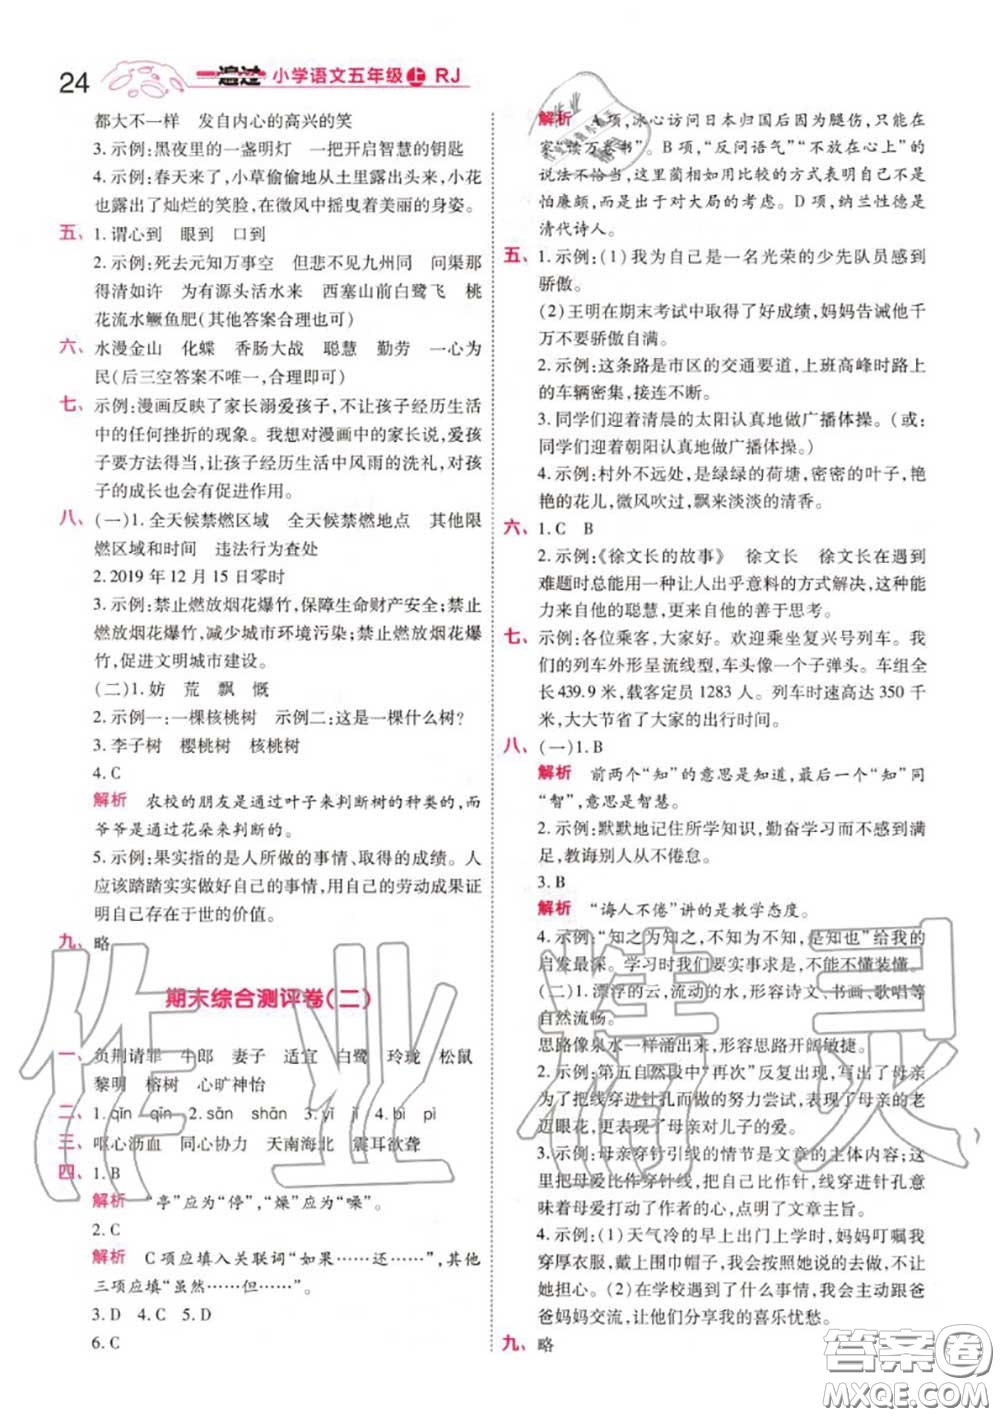 24 一遍过 小学语文五年级上 RJ
都大不一样　发自内心的高兴的笑
3. 示例:黑夜里的一盏明灯　一把开启智慧的钥匙
4. 示例:春天来了,小草偷偷地从土里露出头来,小花
也露出了灿烂的笑脸,在微风中摇曳着美丽的身姿。
五、1. 谓心到　眼到　口到
2. 示例:死去元知万事空　但悲不见九州同　问渠那
得清如许　为有源头活水来　西塞山前白鹭飞　桃
花流水鳜鱼肥(其他答案合理也可)
六、水漫金山　化蝶　香肠大战　聪慧　勤劳　一心为
民(后三空答案不唯一,合理即可)
七、示例:漫画反映了家长溺爱孩子,不让孩子经历生活
中的任何挫折的现象。我想对漫画中的家长说,爱孩
子要方法得当,让孩子经历生活中风雨的洗礼,对孩
子的成长也会有促进作用。
八、(一)1. 全天候禁燃区域　全天候禁燃地点　其他限
燃区域和时间　违法行为查处
2. 2019 年 12 月 15 日零时
3. 示例:禁止燃放烟花爆竹,保障生命财产安全;禁止
燃放烟花爆竹,减少城市环境污染;禁止燃放烟花爆
竹,促进文明城市建设。
(二)1. 妨　荒　飘　慨
2. 示例一:一棵核桃树　示例二:这是一棵什么树?
3. 李子树　樱桃树　核桃树
4. C
解析　农校的朋友是通过叶子来判断树的种类的,而
爷爷是通过花朵来判断的。
5. 示例:果实指的是人所做的事情、取得的成绩。人
应该踏踏实实做好自己的事情,用自己的劳动成果证
明自己存在于世的价值。
九、略
期末综合测评卷(二)
一、负荆请罪　牛郎　妻子　适宜　白鹭　玲珑　松鼠
黎明　榕树　心旷神怡
二、1. qīn　qīn　2. sān　shān　3. yì　jì　4. bì　pì
三、呕心沥血　同心协力　天南海北　震耳欲聋
四、1. B
解析　“亭”应为“停”,“燥”应为“噪”。
2. C
解析　C 项应填入关联词“如果……还……”,其他
三项应填“虽然……但……”。
3. D　4. C　5. D
6. C
解析　项,冰心访问日本归国后因为腿伤,只能在
家“读万卷书”。B 项,“反问语气”“不放在心上”的
说法不恰当,这里蔺相如用比较的方式表明自己不是
怕廉颇,而是对大局的考虑。D 项,纳兰性德是
清代诗人。
五、1. 示例:(1)我为自己是一名光荣的少先队员感到
骄傲。
(2)王明在期末考试中取得了好成绩,妈妈告诫他千
万不要骄傲自满。
2. 示例:这条路是市区的交通要道,上班高峰时路上
的车辆密集,接连不断。
3. 同学们迎着清晨的太阳认真地做广播体操。(或:
同学们迎着朝阳认真地做广播体操。)
4. 示例:村外不远处,是绿绿的荷塘,密密的叶子,艳
艳的花儿,微风吹过,飘来淡淡的清香。
六、1. C　B
2. 示例:《徐文长的故事》　徐文长　徐文长在遇到
难题时总能用一种让人出乎意料的方式解决,这种能
力来自他的聪慧,更来自他的善于思考。
七、示例:各位乘客,大家好。欢迎乘坐复兴号列车。我
们的列车外形呈流线型,车头像一个子弹头。车组全
长 439.9 米,载客定员 1283 人。列车时速高达 350 千
米,大大节省了大家的出行时间。
八、(一)1. B
解析　前两个“知”的意思是知道,最后一个“知”同
“智”,意思是智慧。
2. 示例:默默地记住所学知识,勤奋学习而不感到满
足,教诲别人从不倦怠。
3. B
解析　“诲人不倦”讲的是教学态度。
4. 示例:“知之为知之,不知为不知,是知也”给我的
启发最深。学习时我们要实事求是,不能不懂装懂。
(二)1. 漂浮的云,流动的水,形容诗文、书画、歌唱等
自然流畅。
思路像泉水一样涌出来,形容思路开阔敏捷。
2. 示例:第五自然段中“再次”反复出现,写出了母亲
为了把线穿进针孔而做的努力尝试,表现了母亲的老
迈眼花,更表现了母亲对儿子的爱。
3. 示例:母亲穿针引线的情节是文章的主体内容;这
里把母爱比作穿针线,把自己比作针,线穿进针孔意
味着母爱打动了作者的心,点明了文章主旨。
4. 示例:(1)天气冷的早上出门上学时,妈妈叮嘱我
穿厚衣服,戴上围巾帽子,我会按照她说的去做,不让
她担心。(2)在学校遇到了什么事情,我会主动跟爸
爸妈妈交流,让他们分享我的喜乐忧愁。
九、略
作业精灵
答案圈
MXQE.COM